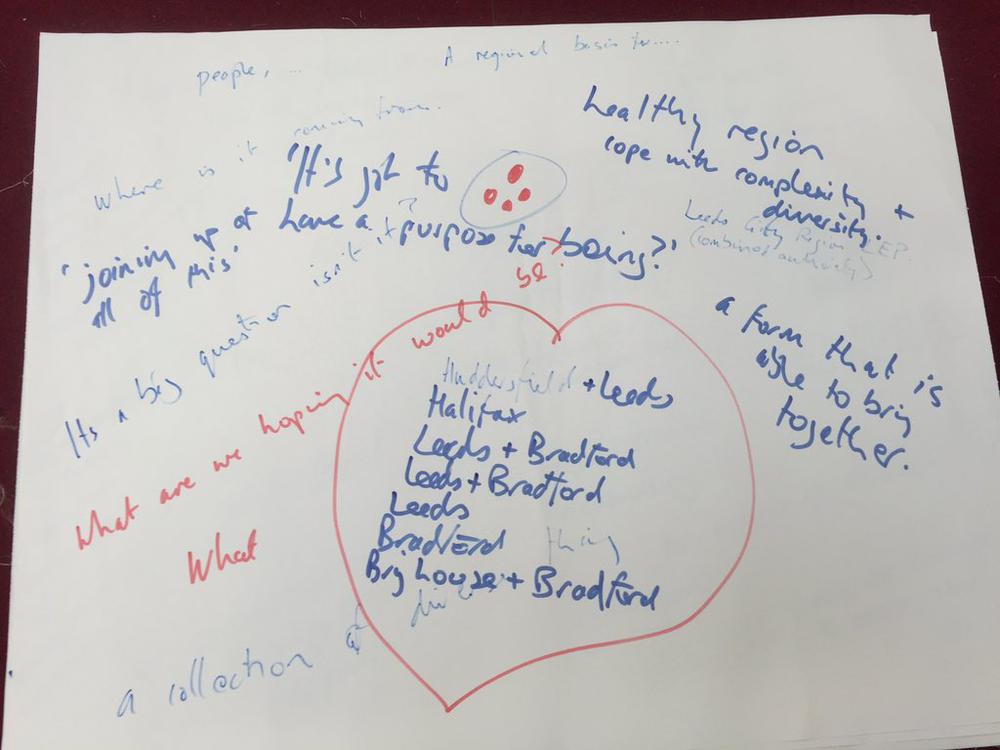 people, ...
A regional basis to....
where is it coming from.
healthy region
cope with complexity +
diversity.
Leeds City Region LEP.
(combined authority)
'It's got to
have a purpose for being?'
'joining up of
all of this'
Its a big question isn't it?
What are we hoping it would be?
What
a form that is
able to bring
together.
Huddersfield + Leeds
Halifax
Leeds + Bradford
Leeds + Bradford
Leeds
Bradford
thing
Brighouse + Bradford
a collection of